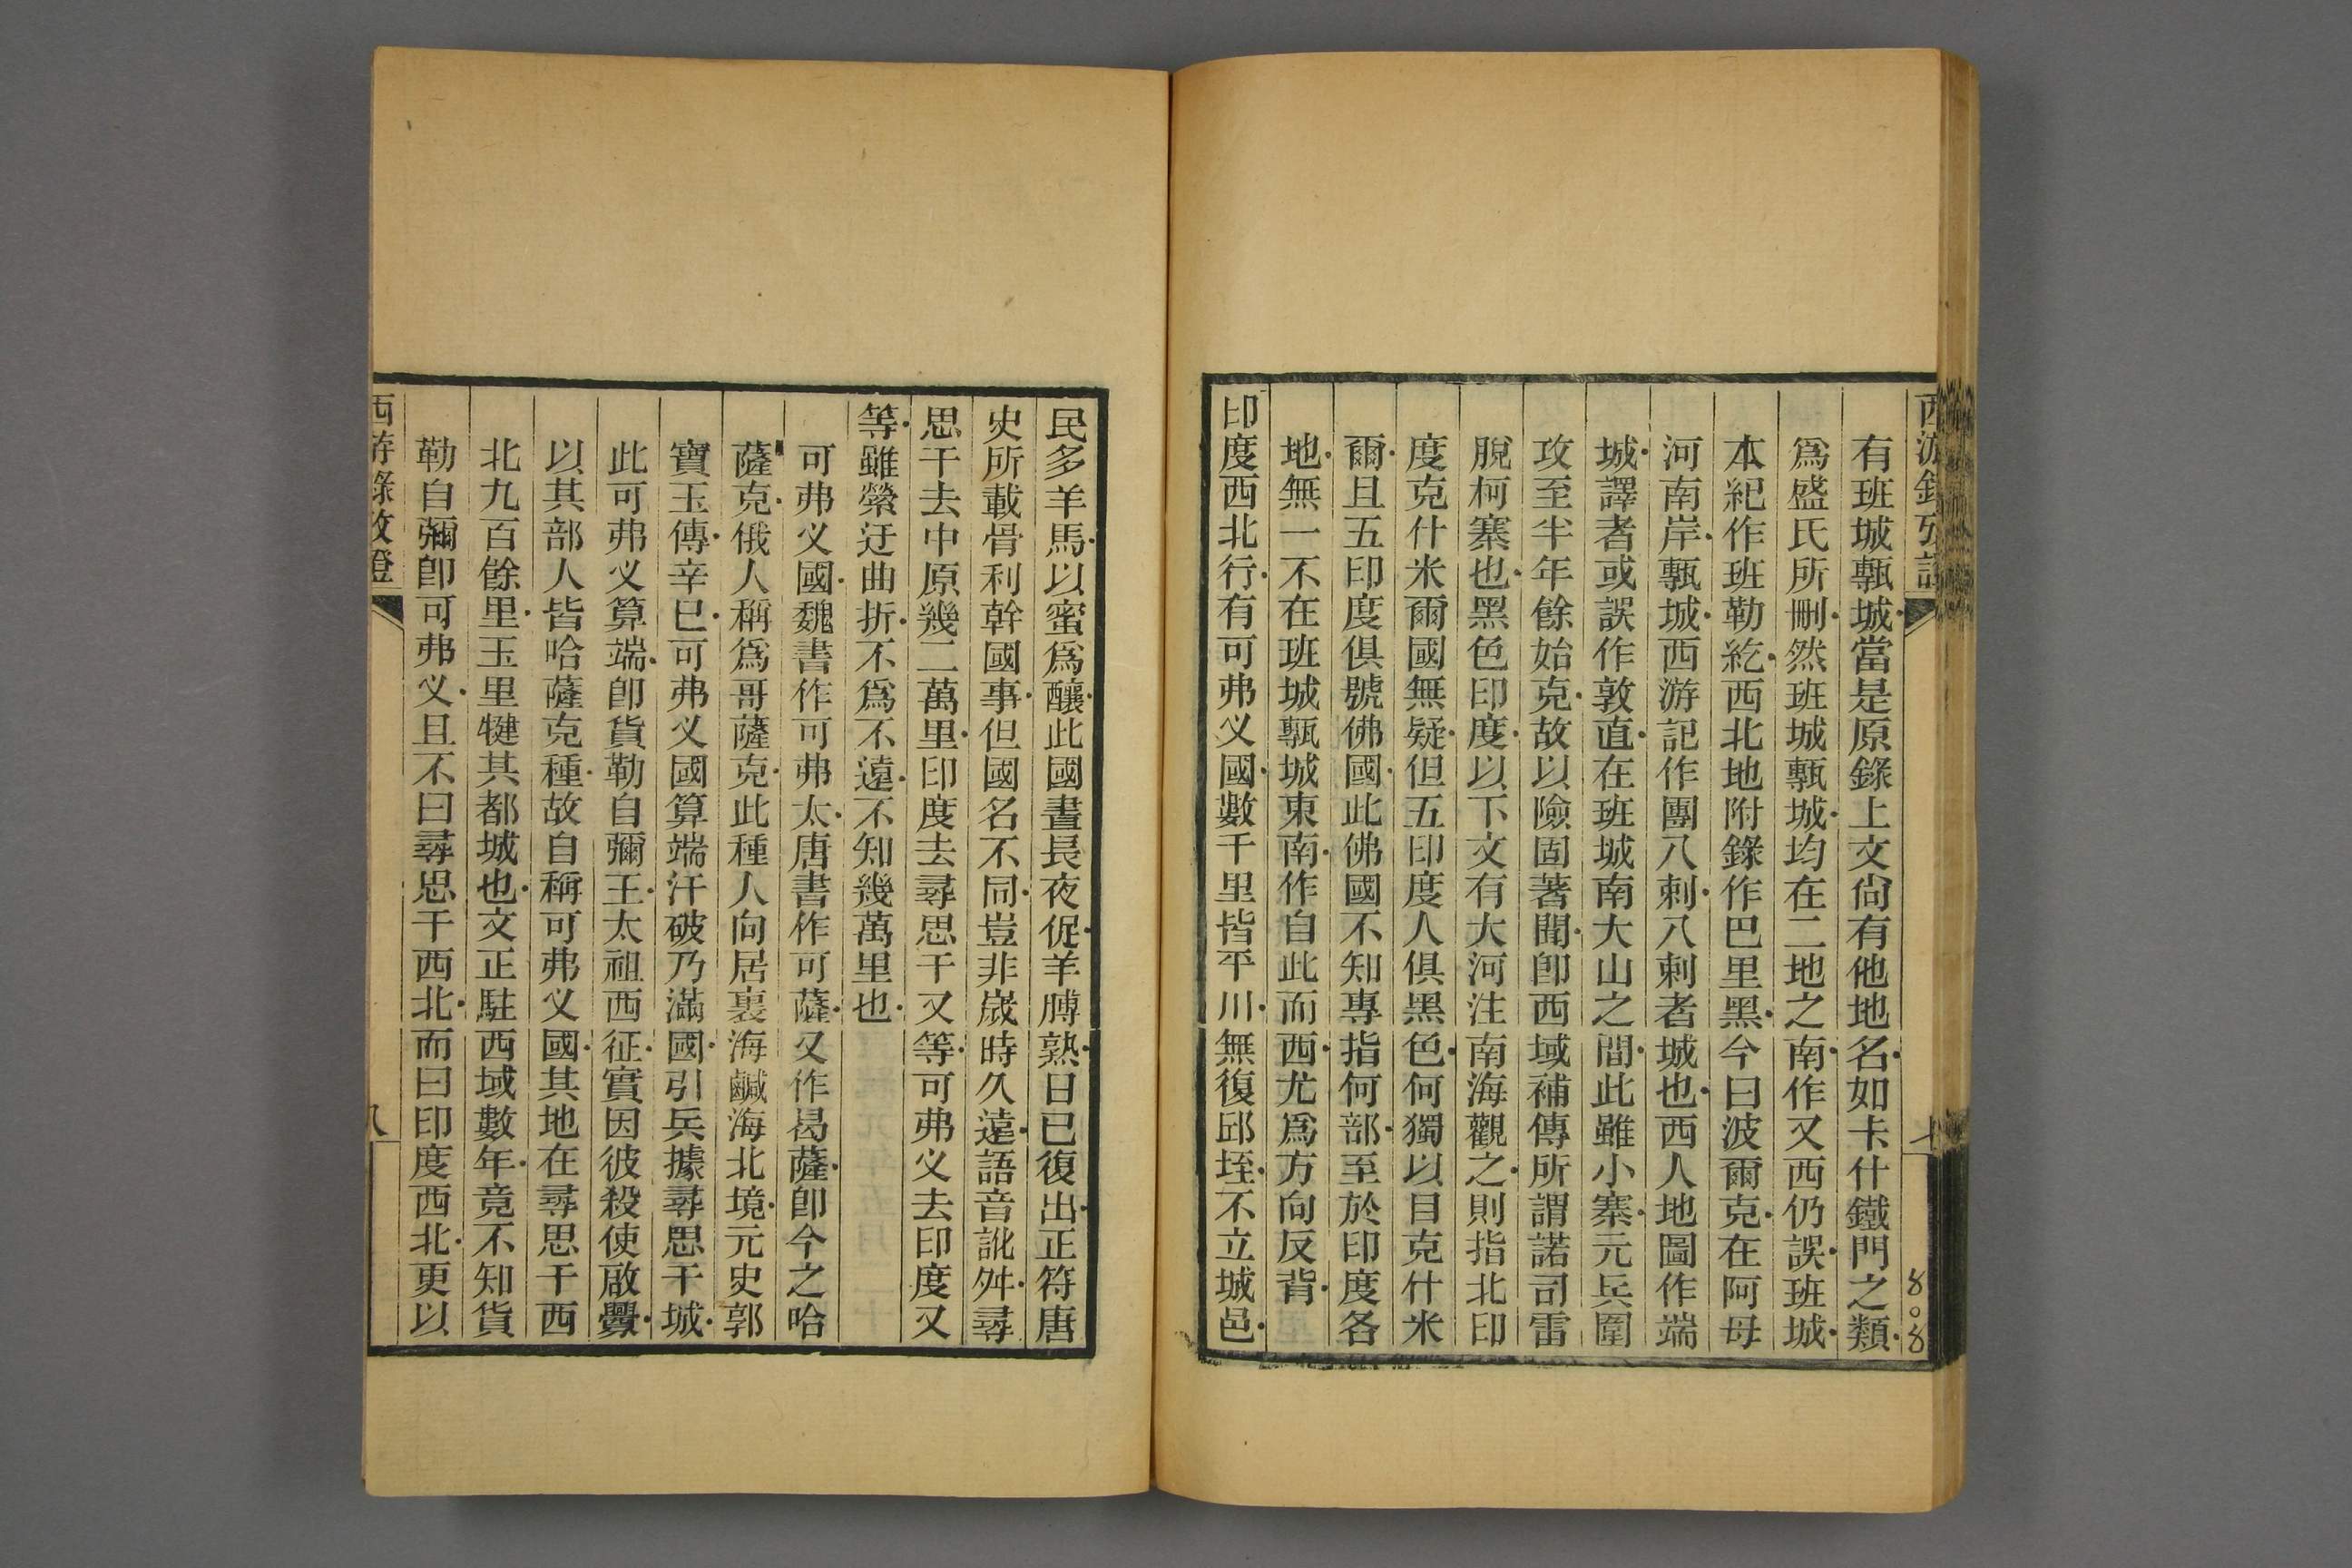 有班城𤬪城當是原錄上文尙有他地名如卡什鐵門之類
爲盛氏所刪然班城𤬪城均在二地之南作又西仍誤班城
本紀作班勒紇西北地附錄作巴里黑今曰波爾克在阿母
河南岸𤬪城西游記作團八剌八剌者城也西人地圖作端
城譯者或誤作敦直在班城南大山之間此雖小寨元兵圍
攻至半年餘始克故以險固著聞卽西域補傳所謂諾司雷
脫柯寨也黑色印度以下文有大河注南海觀之則指北印
度克什米爾國無疑但五印度人俱黑色何獨以目克什米
爾且五印度俱號佛國此佛國不知專指何部至於印度各
地無一不在班城𤬪城東南作自此而西尤爲方向反背
印度西北行有可弗义國數千里皆平川無復邱垤不立城邑
七
808
民多羊馬以蜜爲釀此國晝長夜促羊膊熟日已復出正符唐
史所載骨利幹國事但國名不同豈非歲時久遠語音訛舛尋
思干去中原幾二萬里印度去尋思干又等可弗义去印度又
等雖縈迂曲折不爲不遠不知幾萬里也
可弗义國魏書作可弗太唐書作可薩又作曷薩卽今之哈
薩克俄人稱爲哥薩克此種人向居裏海鹹海北境元史郭
寶玉傳辛巳可弗义國算端汗破乃滿國引兵據尋思干城
此可弗义算端卽貨勒自彌王太祖西征實因彼殺使啟釁
以其部人皆哈薩克種故自稱可弗义國其地在尋思干西
北九百餘里玉里犍其都城也文正駐西域數年竟不知貨
勒自彌卽可弗义且不曰尋思干西北而曰印度西北更以
西游錄攷證
八